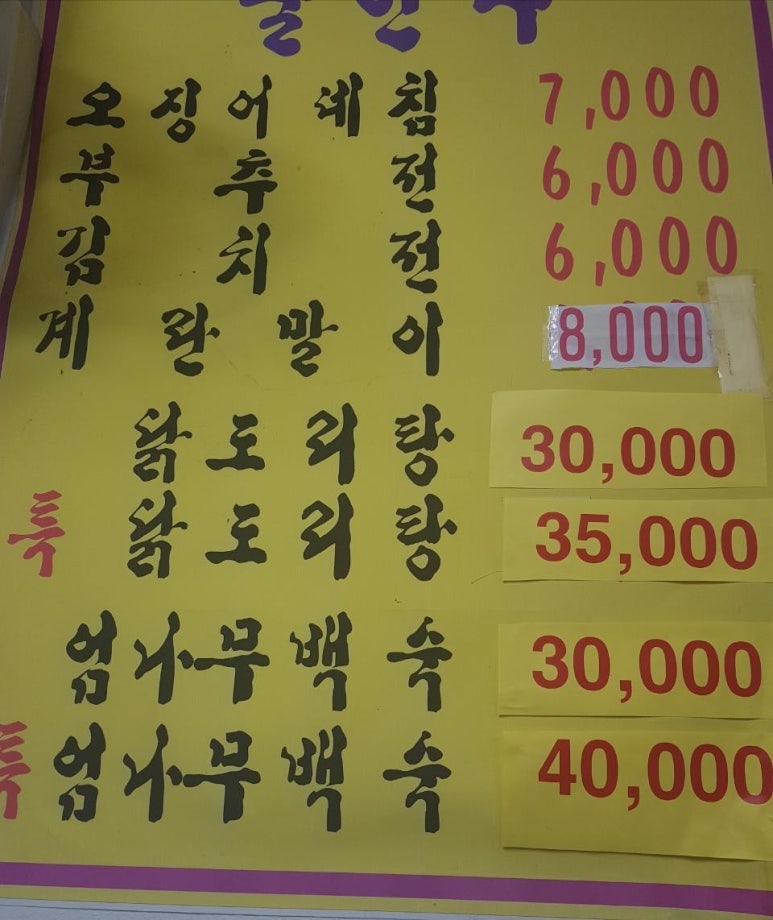 오징어데침 7,000
부추전 6,000
김치전 6,000
계란말이 8,000
닭도리탕 30,000
특 닭도리탕 35,000
엄나무백숙 30,000
특 엄나무백숙 40,000